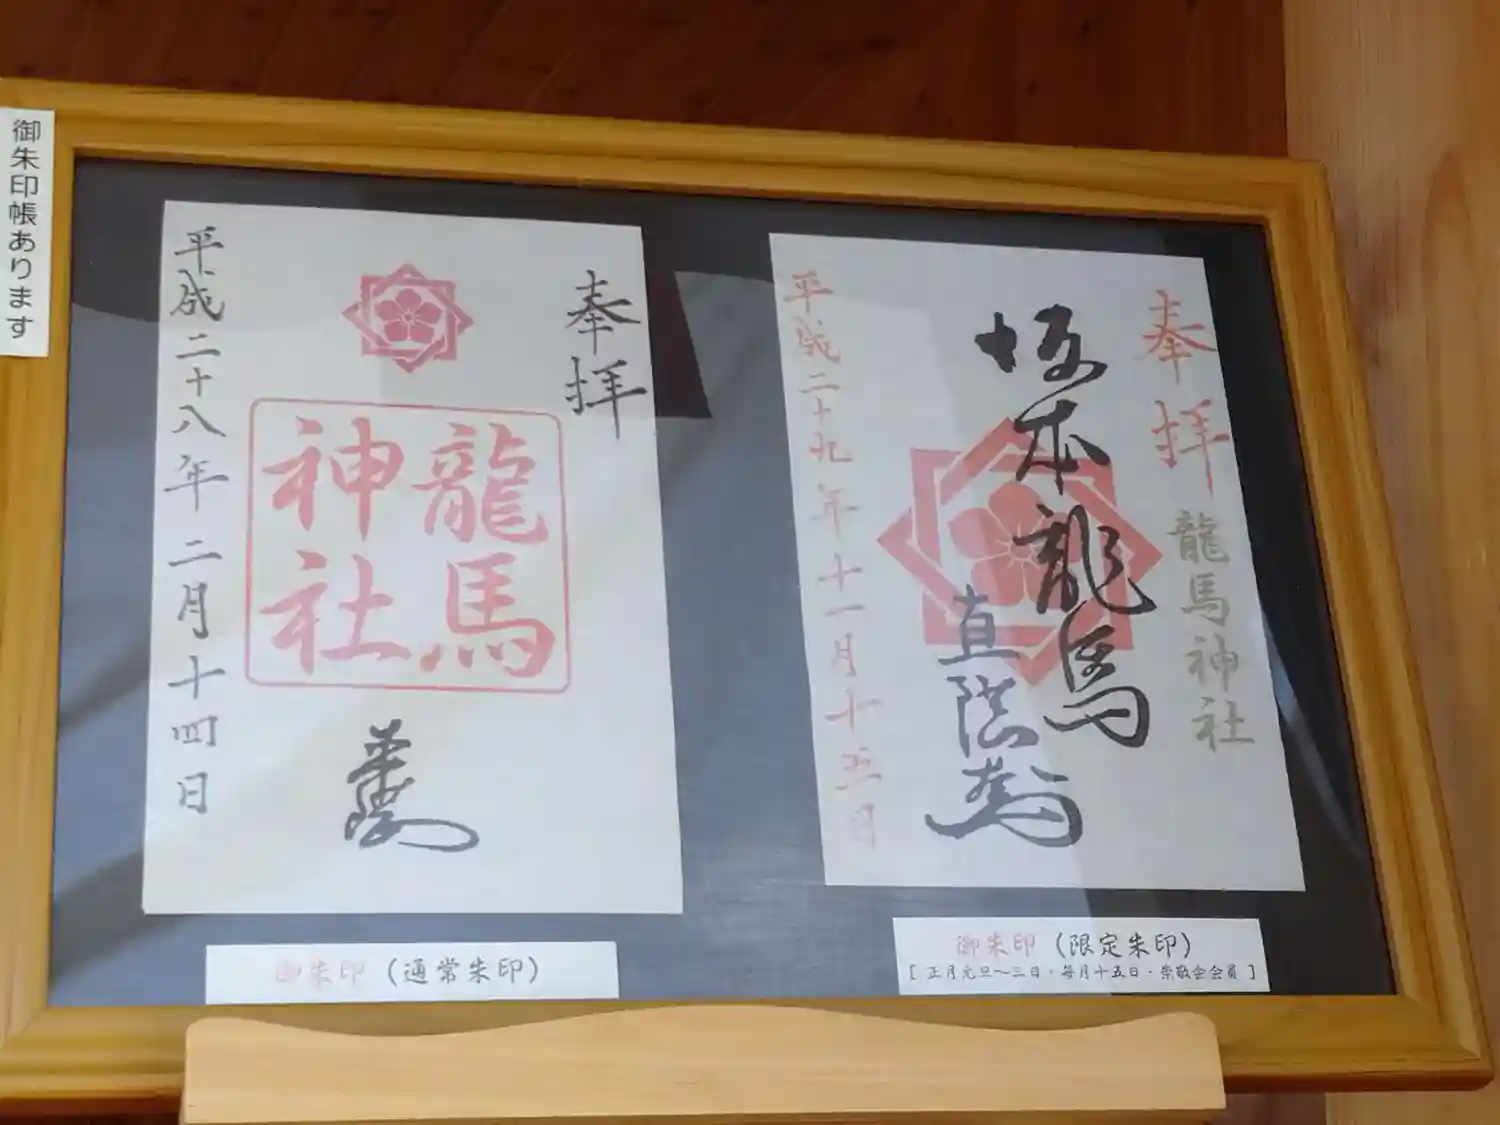 御朱印帳あります
奉拝
龍馬
神社
平成二十八年二月十四日
奉拝
龍馬神社
坂本龍馬
直陰
平成二十九年十一月十五日
御朱印（通常朱印）
御朱印（限定朱印）
[ 正月元旦～三日・毎月十五日・崇敬会会員 ]